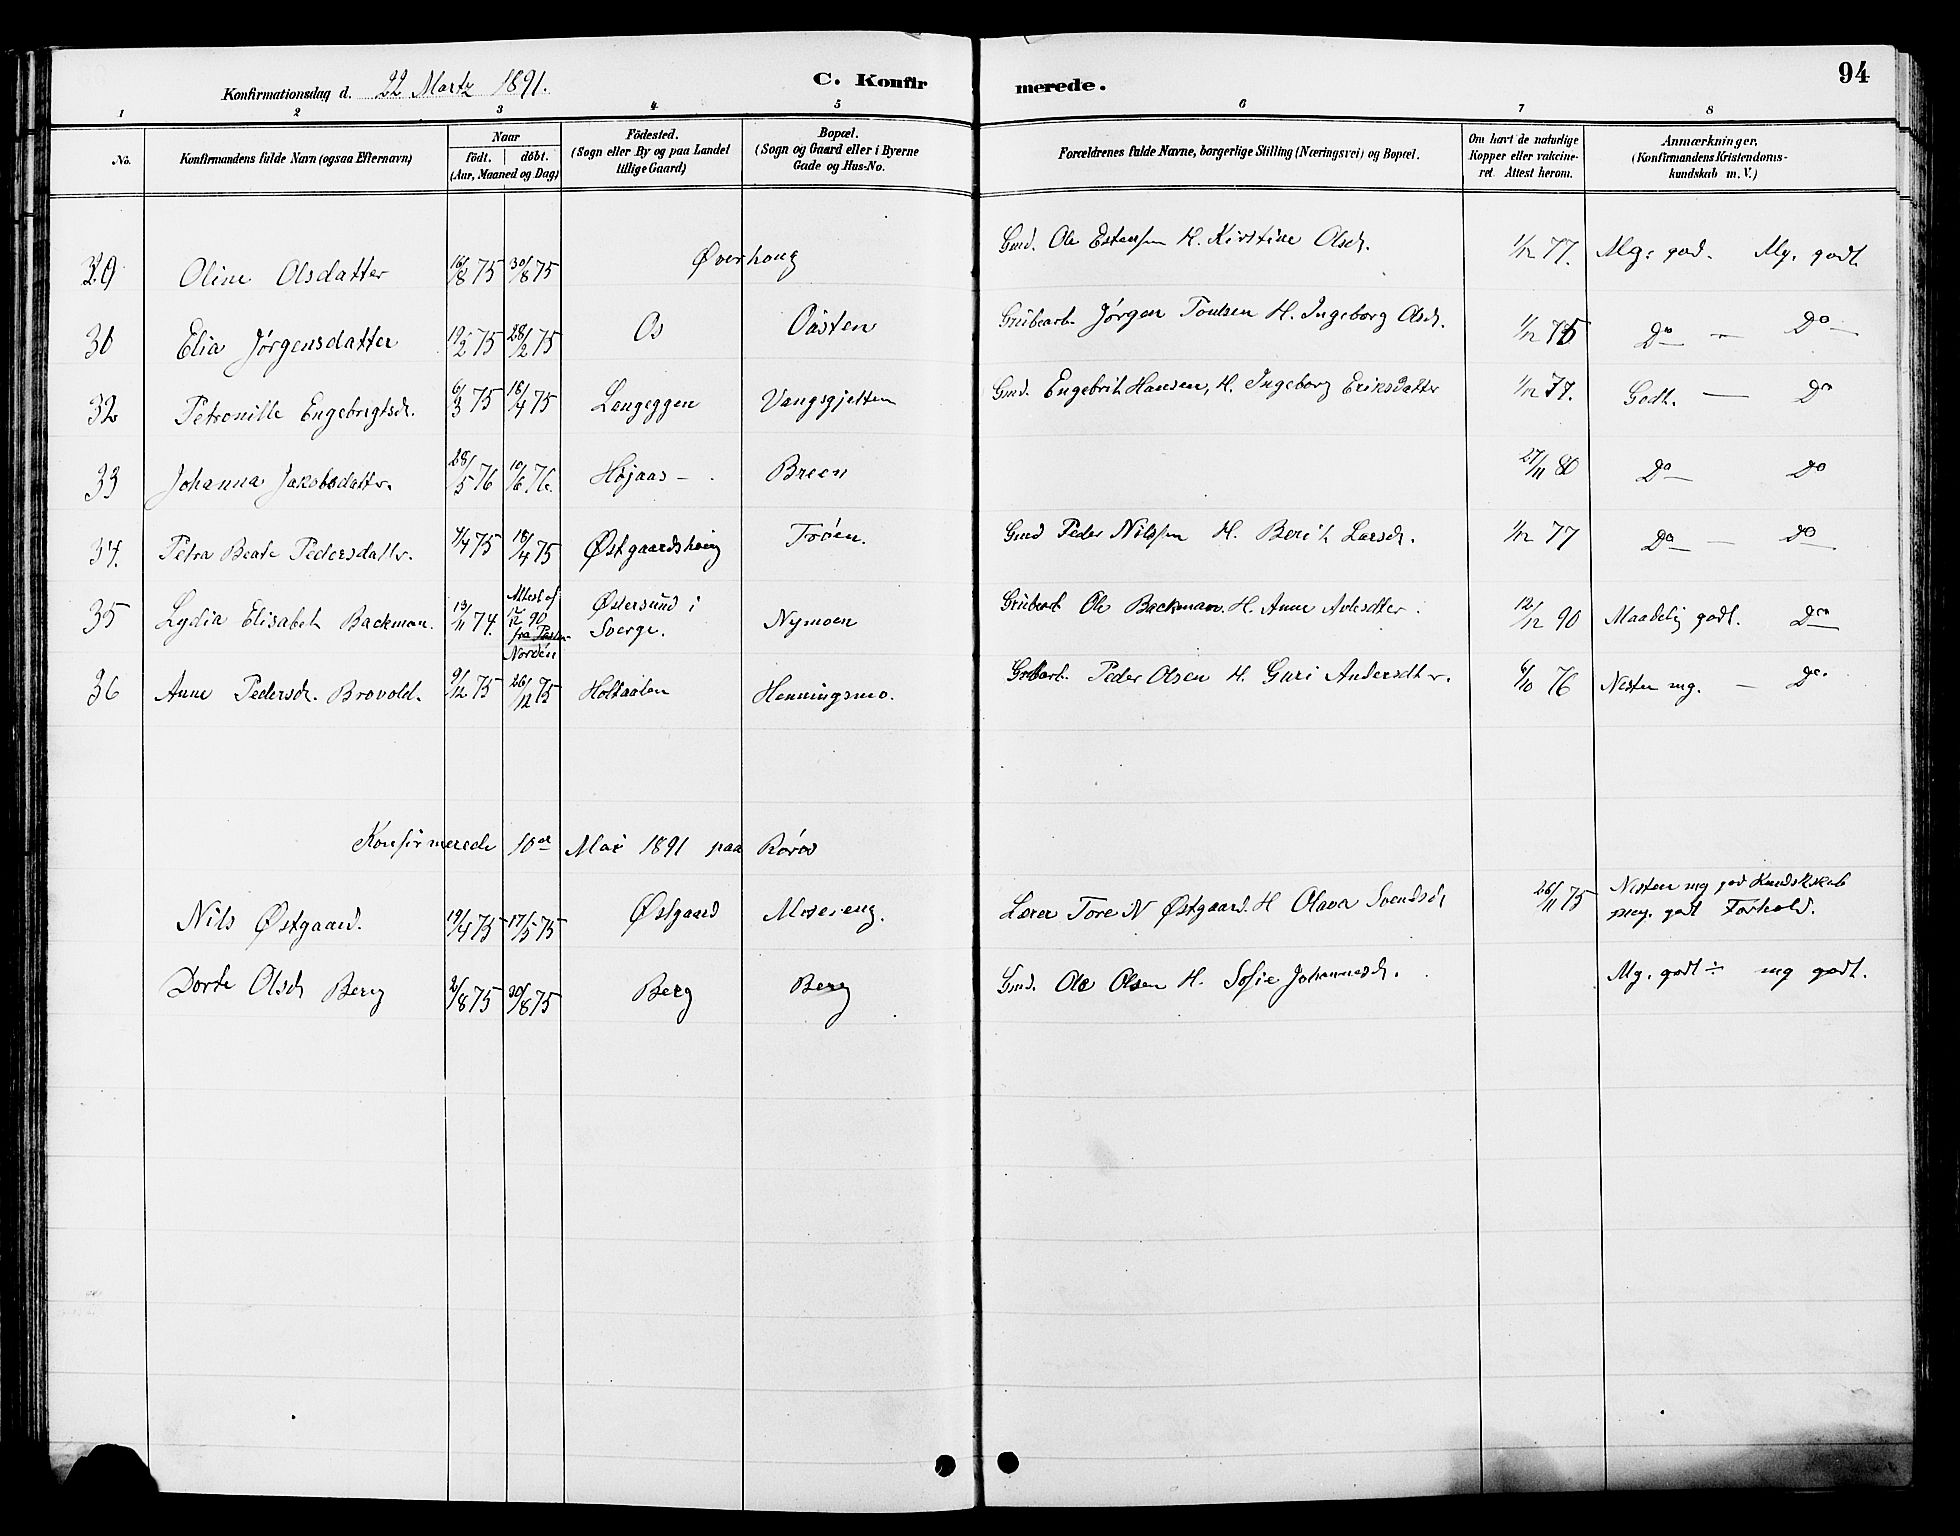 Konfirmationsdag d. 22 Martz 1891. C. Konfirmerede. 94
1 2 3 4 5 6 7 8
No. Konfirmandens fulde Navn (ogsaa Efternavn) Naar födt. döbt. (Aar, Maaned og Dag) Födested. (Sogn eller By og paa Landet tillige Gaard) Bopæl. (Sogn og Gaard eller i Byerne Gade og Hus-No. Forældrenes fulde Navne, borgerlige Stilling (Næringsvei) og Bopæl. Om havt de naturlige Kopper eller vakcineret. Attest herom. Anmærkninger. (Konfirmandens Kristendomskundskab m. V.)
29 Oline Olsdatter 16/8 75 30/8 75 Øverhoug Gmd. Ole Estensen H. Kirstine Olsdr. 1/12 77. Mg. god. Mg. godt.
30 Elia Jørgensdatter 19/2 75 28/2 75 Os Oasten Grubearb. Jørgen Poulsen H. Ingeborg Olsdr. 1/12 75 Do — Do
32 Petronille Engebrigtsdr. 6/3 75 18/4 75 Langeggen Vangsgjetten Gmd. Engebrit Hansen, H. Ingeborg Eriksdatter 1/12 77. Godt. — Do
33 Johanna Jakobsdattr. 28/5 76 10/6 76. Højaas Breen 27/11 80 Do Do
34. Petra Beate Pedersdattr. 4/4 75 18/4 75 Østgaardshoug Trøen. Gmd Peder Nilssen H. Berit Larsdr. 1/12 77 Do — Do
35 Lydia Elisabet Backman. 13/11 74. Attest af 12/12 90 fra Pastor Nordén Østersund i Sverge. Nymoen Grubearb Ole Backman. H. Anne Arlesdter. 12/12 90 Maadelig godt. Do
36 Anne Pedersdr. Brovold. 9/12 75 26/12 75 Holtaalen Henningsmo. Grubearb. Peder Olsen H. Guri Andersdtr. 6/10 76 Nesten mg. — Do.
Konfirmerede 10de Mai 1891 paa Røros
Nils Østgaard. 19/4 75 17/5 75 Østgaard Moseeng. Lærer Tore N Østgaard. H Olava Svendsdr 26/11 75 Nesten mg god Kundskab
meg. godt Forhold.
Dorte Olsdr Berg 2/8 75 30/8 75 Berg Berg Gmd. Ole Olsen H. Sofie Johannesdr. Mg. godt ÷ mg godt.